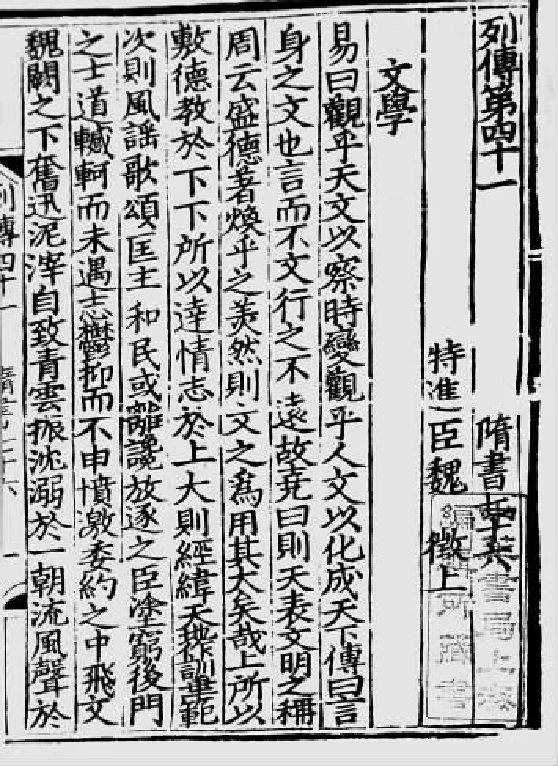 列傳第四十一
隋書
特進臣魏徵上
文學
易曰觀乎天文以察時變觀乎人文以化成天下傳曰言
身之文也言而不文行之不遠故堯曰則天表文明之稱
周云盛德著煥乎之美然則文之為用其大矣哉上所以
敷德教於下下所以達情志於上大則經緯天地作訓垂範
次則風謡歌頌匡主和民或離讒放逐之臣塗窮後門
之士道轗軻而未遇志鬱抑而不申憤激委約之中飛文
魏闕之下奮迅泥滓自致青雲振沈溺於一朝流風聲於
列傳四十一